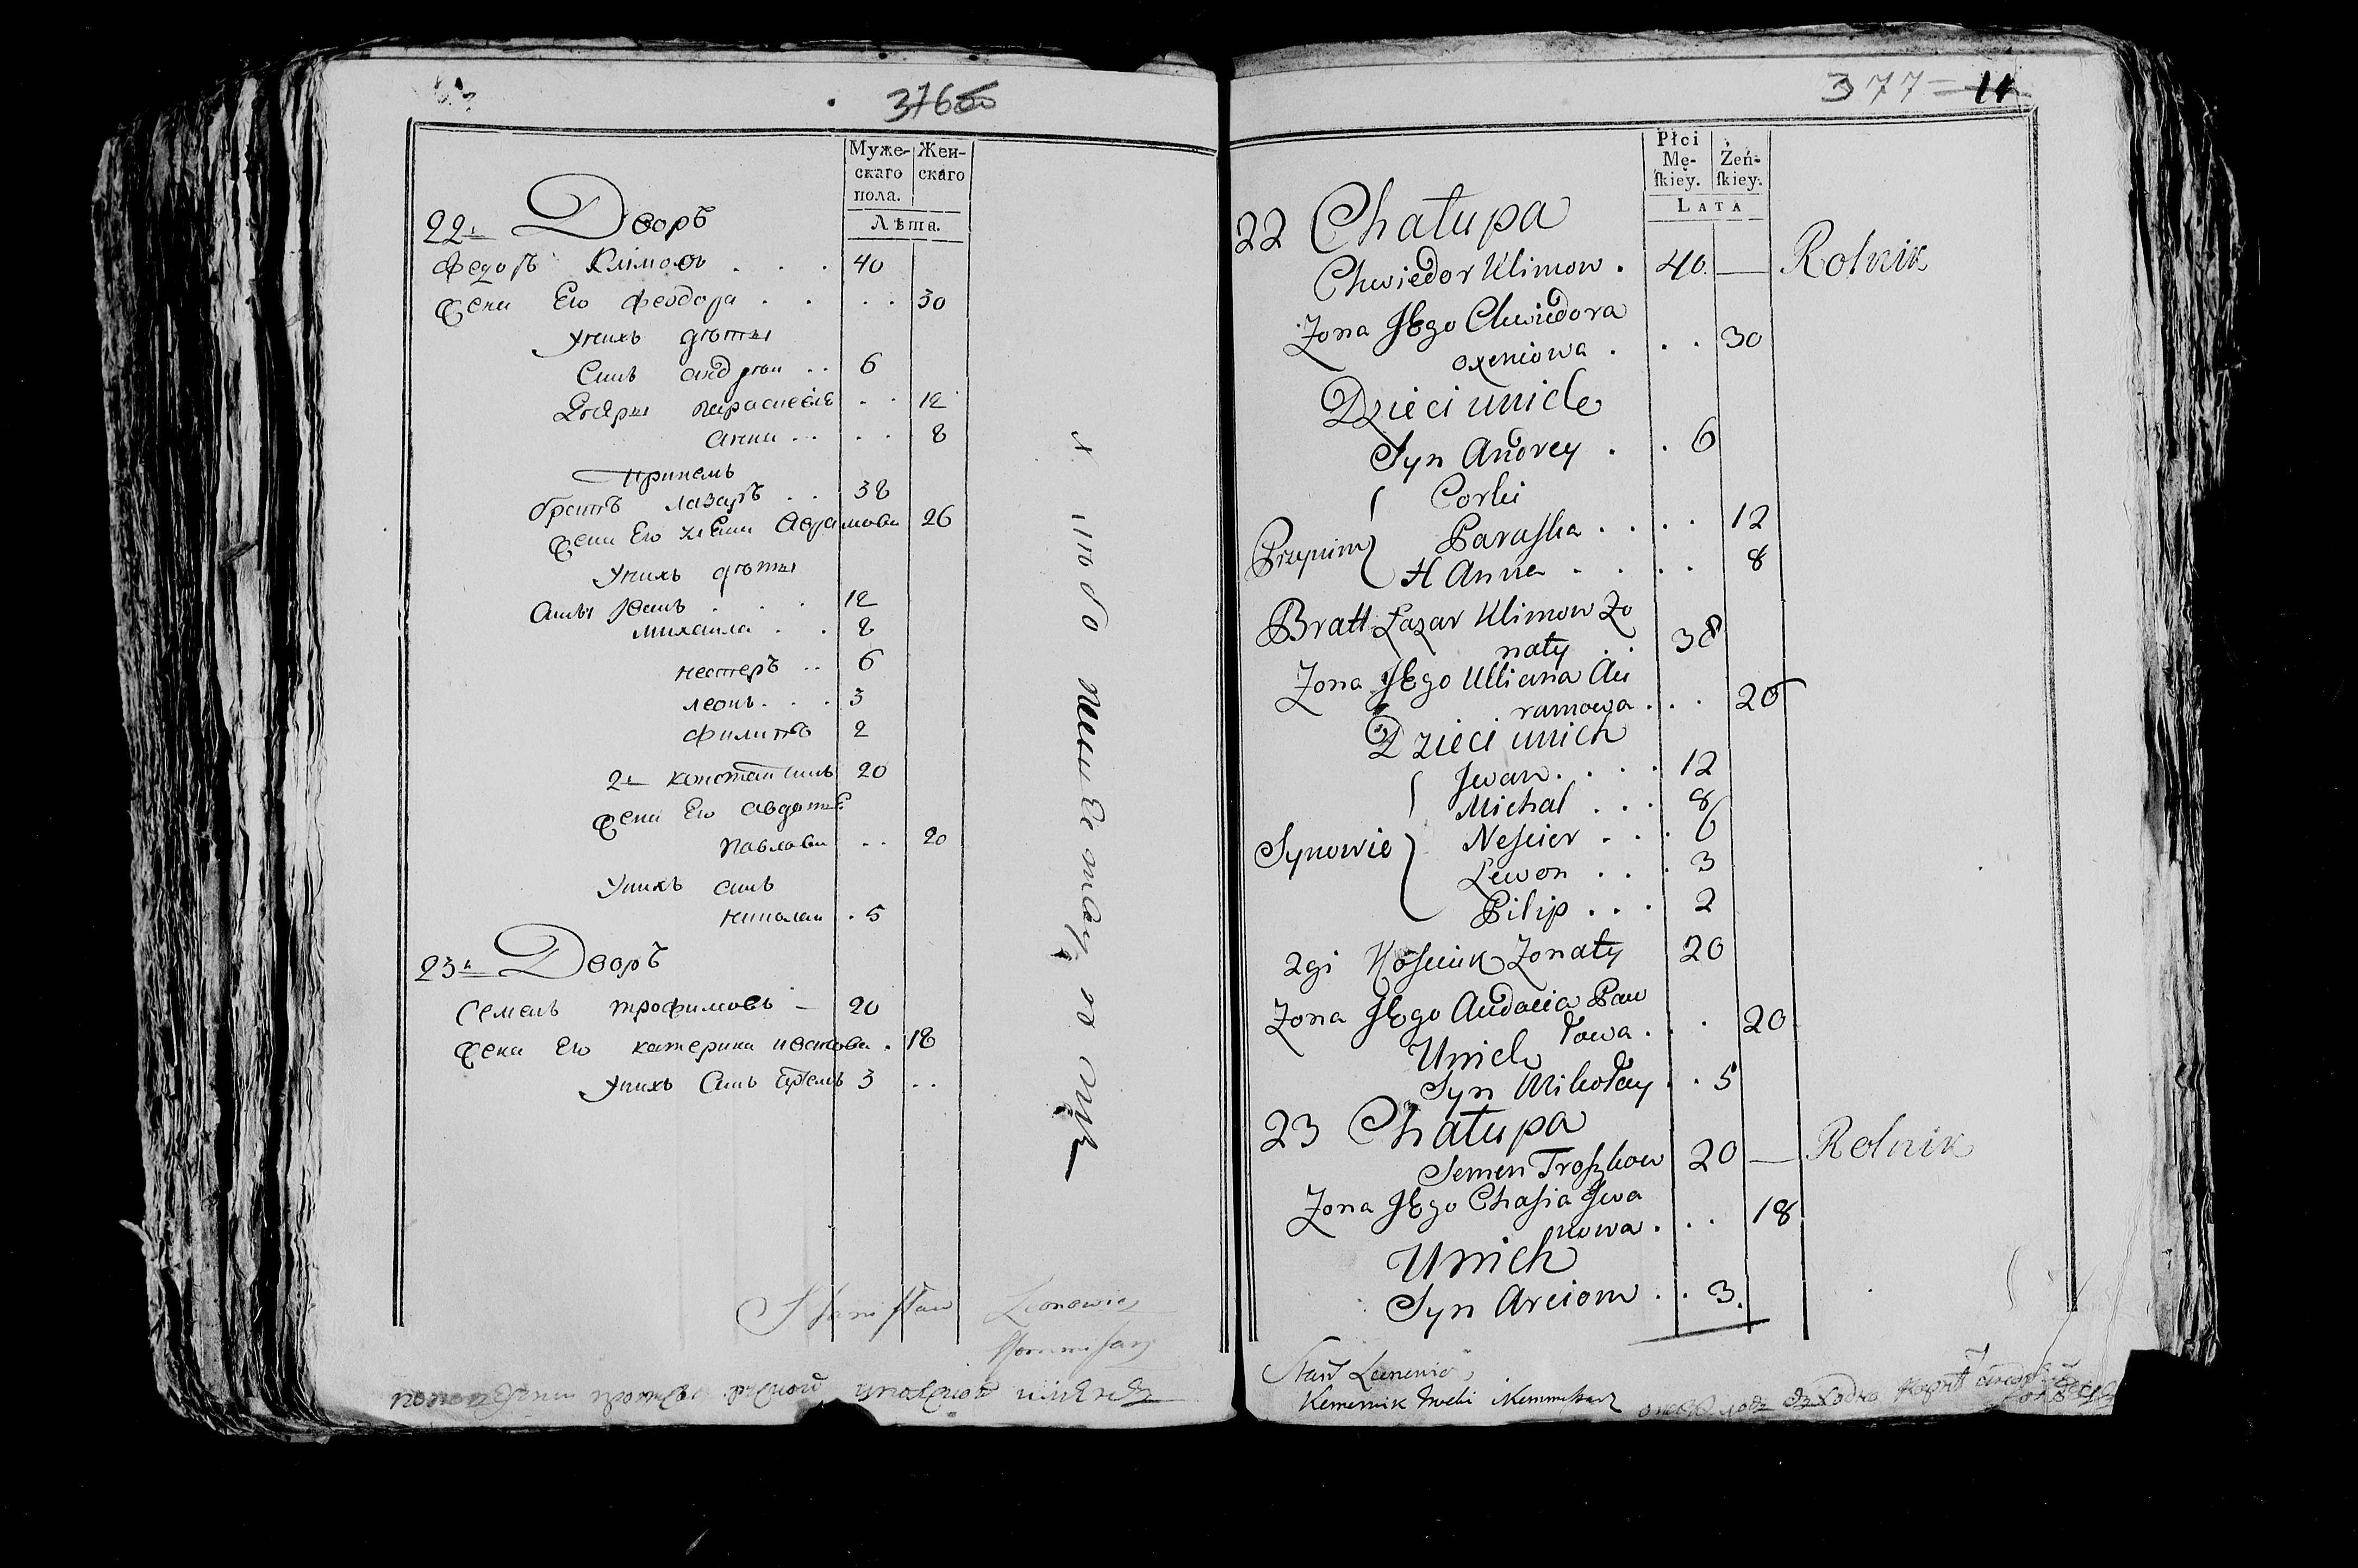 376
Муже-
скаго
пола.
Жен-
скаго
Лѣта.
22. Дворъ
Федоръ Климовъ . . . 40
Жена Его Феодора . . . . 30
Унихъ дѣти
Сынъ андреи . . 6
Дочери параскевiя . . 12
анна . . . . 8
принемъ
братъ лазарь . . 38
Жена Его улiана Аврамова 26
Унихъ дѣти
Сыны Iванъ . . . 12
михаила . . 8
нестеръ . . 6
леонъ . . . 3
филипъ 2
2. констатинъ 20
Жена Его авдотья
павлова . . 20
Унихъ сынъ
николаи . 5
23. Дворъ
Семенъ трофимовъ — 20
Жена Его катерина иванова . 18
Унихъ Сынъ артемъ 3 . .
Stanisław Leonowicz
Kommisarz
377 11
Płci
Mę-
ſkiey.
Żeń-
ſkiey.
LATA
22 Chałupa
Chwiedor Klimow . 40. — Rolnik
Zona JEgo Chwiedora
oxeniowa . . . 30
Dzieci unich
Syn Andrey . . 6
Corki
Paraſka . . . . 12
Przynim
H Anna . . . . 8
Bratt Łazar Klimow Zo
naty . . 38
Zona JEgo Ulliana Au
ramowa . . . 26
Dzieci unich
Jwan . . . . 12
Michał . . . 8
Synowie Neſcier . . . 6
Lewon . . . 3
Pilip . . . 2
2gi Koſciuk Zonaty 20
Zona JEgo Audocia Paw
łowa . . . 20
Unich
Syn Mikołay . . 5
23 Chałupa
Semen Troſzkow 20 — Rolnik
Zona JEgo Chaſia Jwa
nowa . . . 18
Unich
Syn Arciom . . 3.